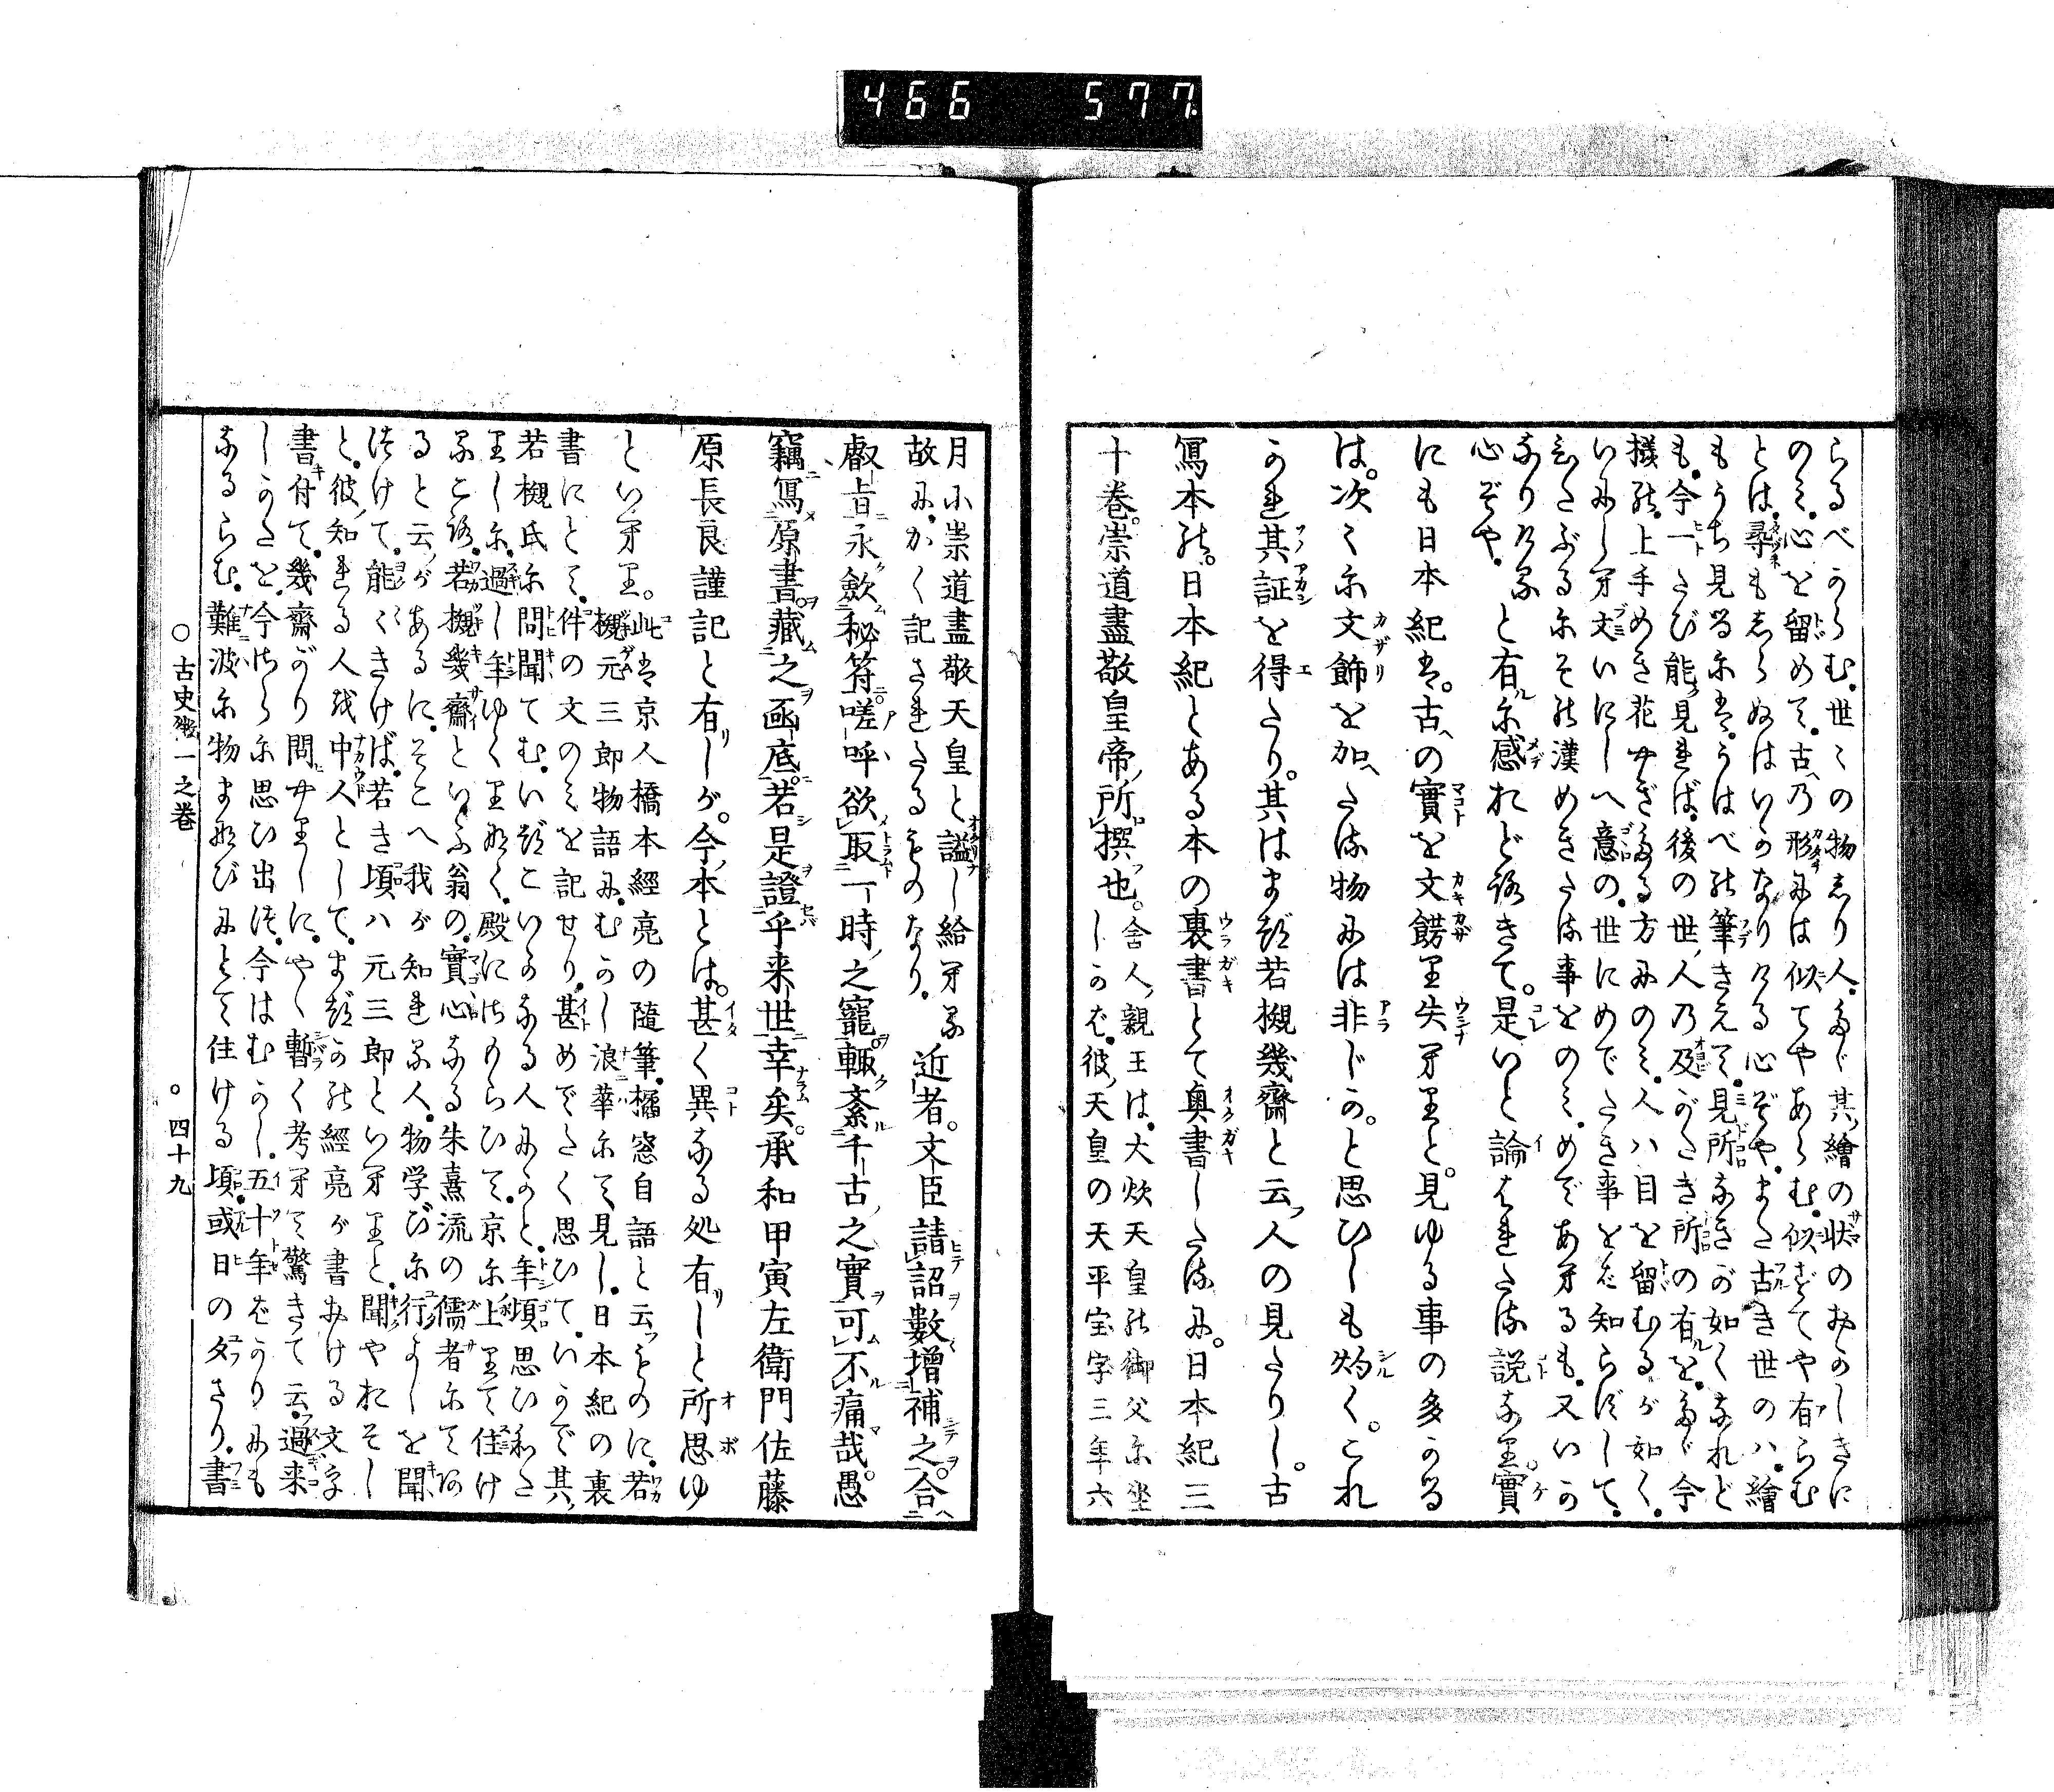 466 577
らるべからむ。世々の物しり人。たゞ其繪の状のおかしきに
のみ。心を留めて。古乃形には似てやあらむ。似ずてや有らむ
とは。尋もしらぬはいかなりける心ぞや。また古き世のハ。繪
もうち見るには。うはべの筆きえて。見所なきが如くなれど
も。今一たび能見れば。後の世人乃及がたき所の有を。たゞ今
様の。上手めき花やぎたる方にのみ。人ハ目を留むるが如く。
いにし牙文いにしへ意の。世にめでたき事をば知らずして。
ひたぶるにその漢めきたる事をのみ。めであ牙るも。又いか
なりける
心ぞや。
と有に感れどろきて。是いと論はれたる説なり。實
にも日本紀は。古の實を文餝り失牙りと。見ゆる事の多かる
は。次々に文飾を加へたる物には非じか。と思ひしも灼く。これ
かれ其証を得たり。其はまづ若槻幾齋と云人の見たりし。古
寫本の。日本紀とある本の裏書とて奥書したるに。日本紀三
十巻。崇道盡敬皇帝所撰也。
舎人親王は。大炊天皇の御父に坐
しかば。彼天皇の天平宝字三年六
月に崇道盡敬天皇と謚し給牙る
故に。かく記されたるものなり。
近者。文臣請詔數増補之。合
叡旨永歛秘符。嗟呼欲取一時之寵輙紊千古之實可不痛哉。愚
竊寫原書。藏之凾底。若是證乎来世幸矣。承和甲寅左衛門佐藤
原長良謹記と有しが。今本とは。甚く異なる処有しと所思ゆ
とい牙り。
此は京人橋本經亮の随筆。橘窓自語と云ものに。若
槻元三郎物語に。むかし浪華にて見し。日本紀の裏
書にとて。件の文のみを記せり。甚めでたく思ひて。いかで其
若槻氏に問聞てむ。いづこいかなる人にかと。年頃思ひわた
りしに。過し年ゆくりなく。殿に仕つらひて。京に上りて住け
るころ。若槻幾齋といふ翁の。實心なる朱熹流の儒者にてな
ると云があるに。そこへ我が知れる人。物学びに行よしを聞
つけて。能くきけば。若き頃ハ元三郎とい牙りと。聞やれそし
と。彼知れる人を中人として。まづかの經亮が書おける文字
書付て。幾齋がり問やりしに。やゝ暫く考牙て驚きて云。過来
しかたを。今さらに思ひ出つ。今はむかし。五十年ばかりにも
なるらむ。難波に物まなびにとて住ける頃。或日の夕さり。書
○古史徴一之巻
○四十九